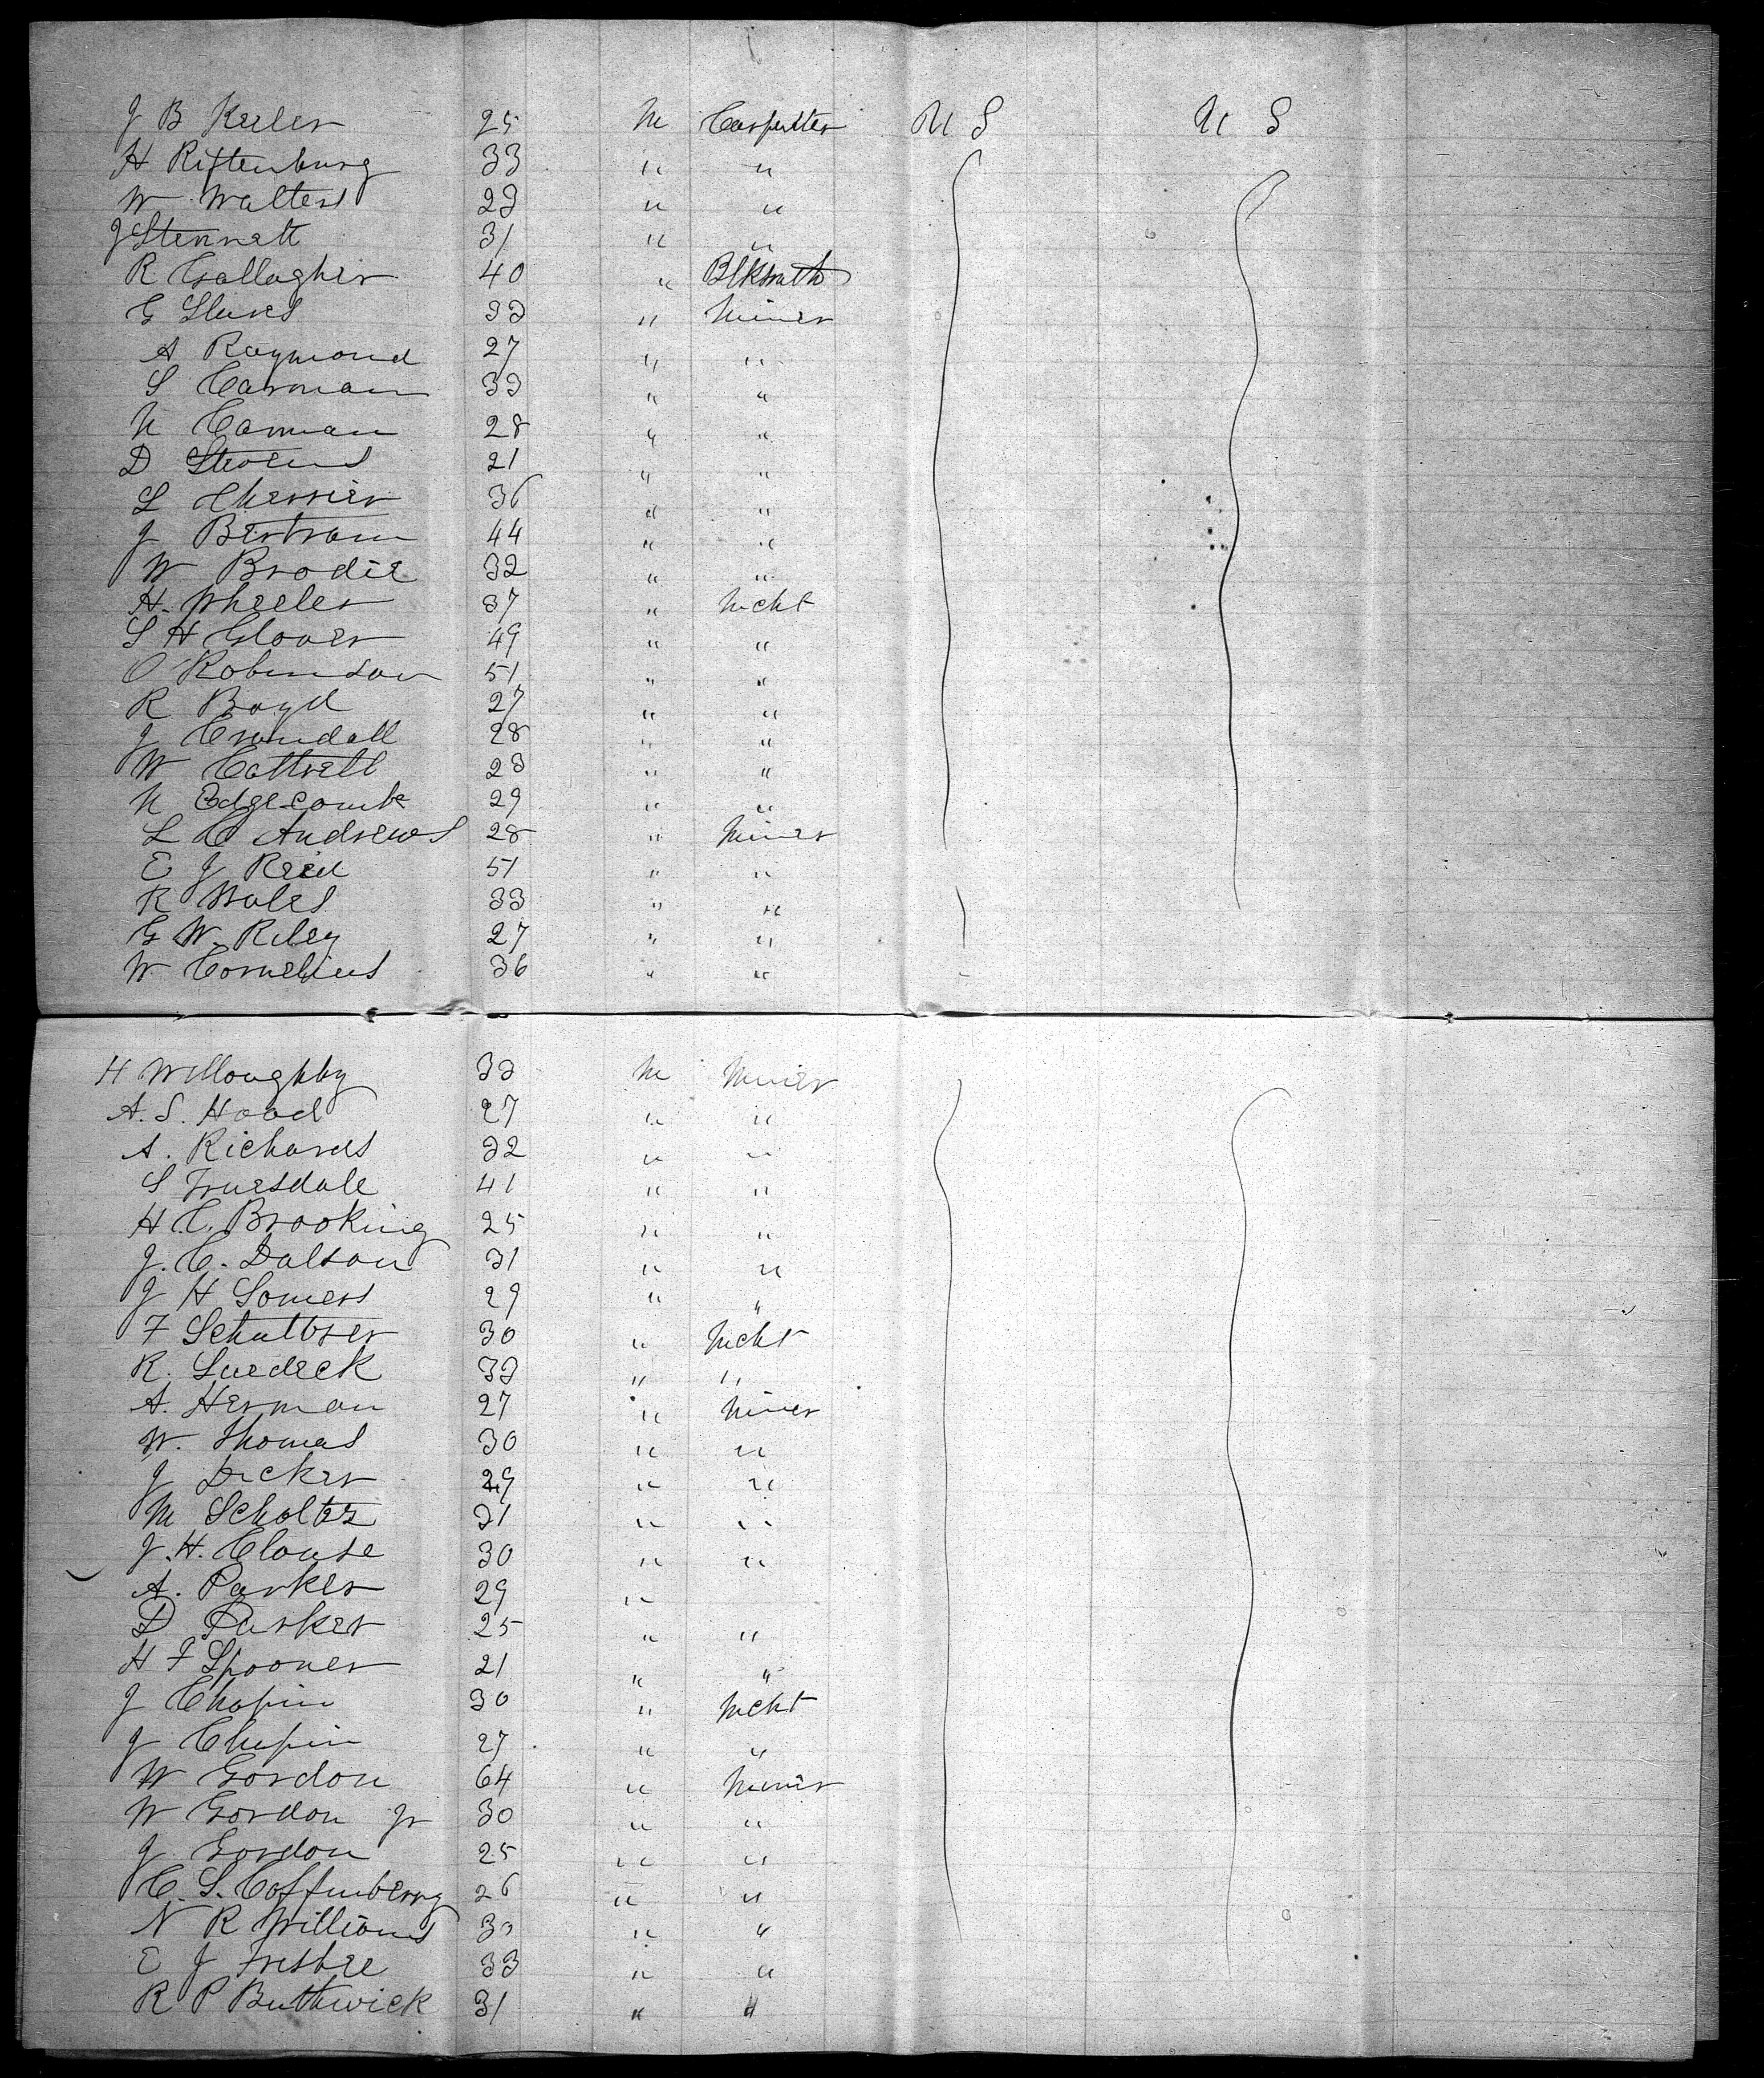 J B Keeler 25 M Carpenter U S U S
H Riftenburg 33 " "
W Walters 23 " "
J Stennett 31 " "
R Gallagher 40 " Blksmith
G Slives 33 " Miner
A Raymond 27 " "
S Carman 33 " "
N Carman 28 " "
D Stevens 21 " "
L Cherrier 36 " "
J Bertram 44 " "
W Brodie 32 " "
H. Wheeler 37 " Mcht
S H Glover 49 " "
O Robinson 51 " "
R Boyd 27 " "
J Crandall 28 " "
W Cottrell 23 " "
N Edgecomb 29 " "
L C Andrews 28 " Miner
E J Reid 51 " "
R Wales 33 " "
G W. Riley 27 " "
W Cornelius 36 " "
H Willoughby 33 M Miner
A. S. Hood 27 " "
A. Richards 32 " "
S Truesdale 41 " "
H. C. Brooking 25 " "
J. C. Dalson 31 " "
J H Somers 29 " "
F Schultser 30 " Mcht
R. Luedeck 33 " "
A. Herman 27 " Miner
W. Thomas 30 " "
J Decker 29 " "
M Scholtz 31 " "
J. H. Clouse 30 " "
A. Parker 29 "
D Parker 25 " "
H F Spooner 21 " "
J Chapin 30 " Mcht
J Chapin 27 " "
W Gordon 64 " Miner
W Gordon Jr 30 " "
J Gordon 25 " "
C. S. Coffinberry 26 " "
N R Williams " "
E J Frisbee 33 " "
R P Buthwick 31 " "